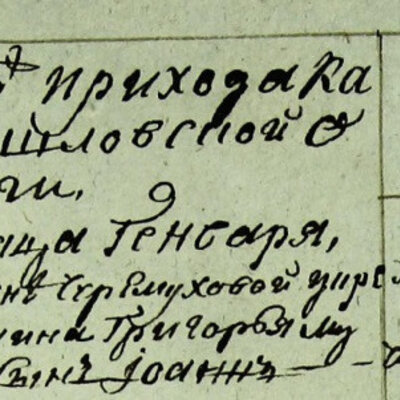 прихода Ка
шловской О
ги. 9
яца Генваря,
Черемуховой у кре
нина Григорья му
сынъ Іоаннъ